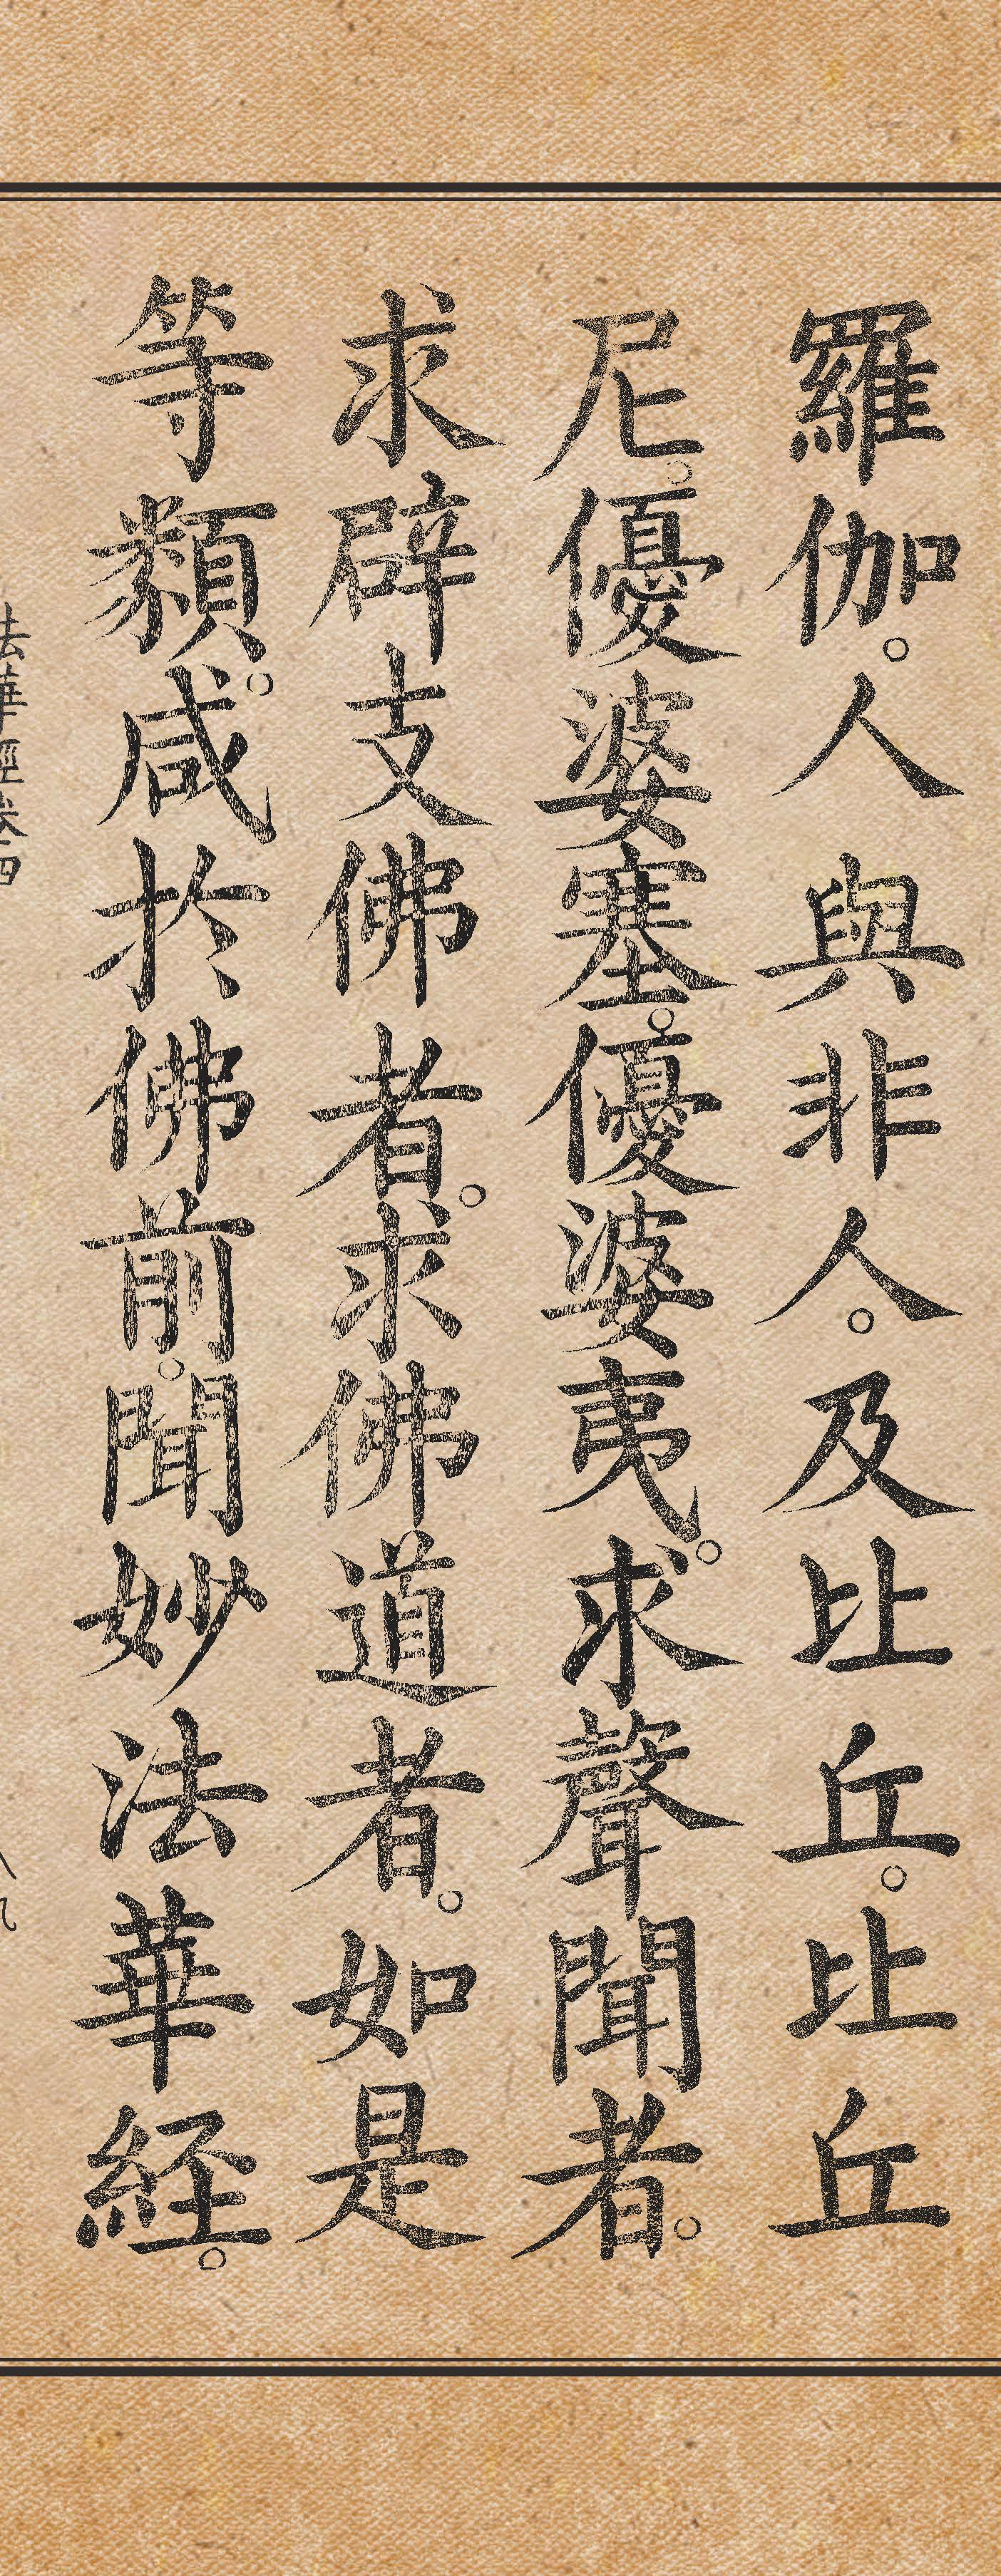 羅伽。人與非人。及比丘。比丘
尼。優婆塞。優婆夷。求聲聞者。
求辟支佛者。求佛道者。如是
等類。咸於佛前。聞妙法華経。
法華經卷四